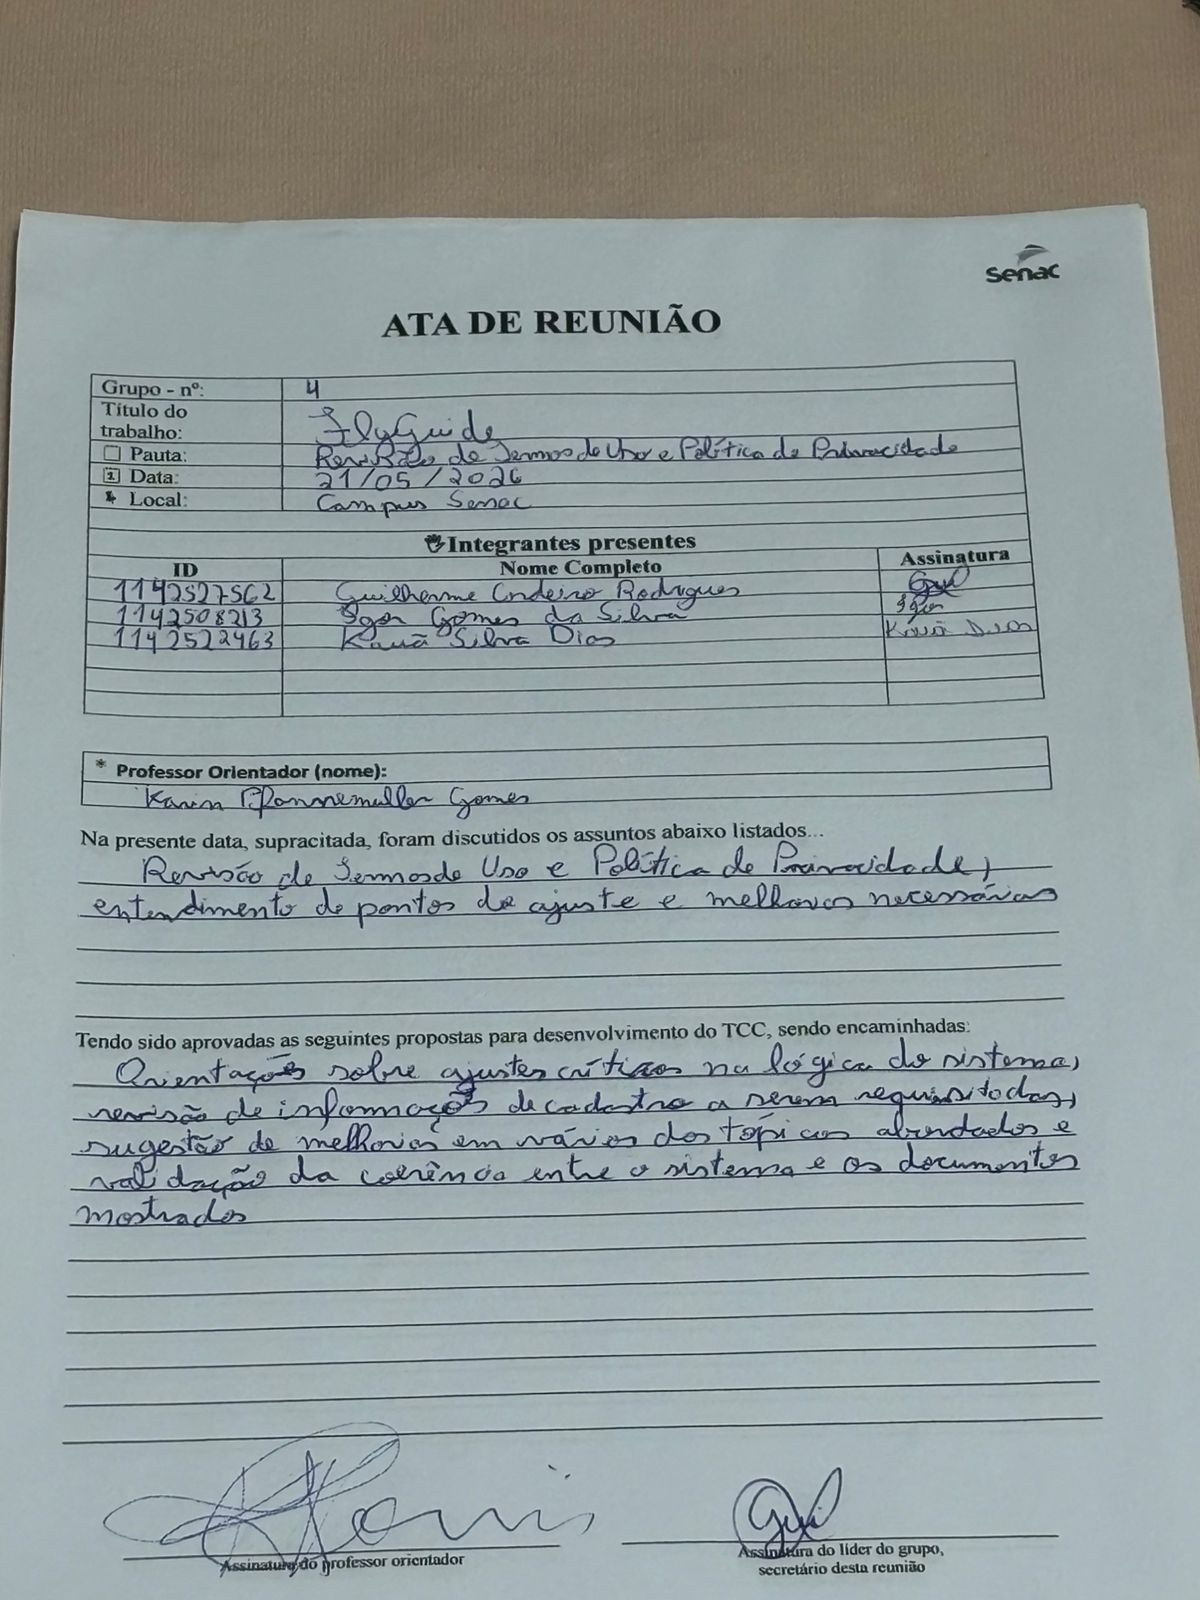 Senac
ATA DE REUNIÃO
Grupo - nº: 4
Título do
trabalho: FlyGuide
Pauta: Revisão de Termos de Uso e Política de Privacidade
Data: 21/05/2026
Local: Campus Senac
Integrantes presentes
ID Nome Completo Assinatura
1142527562 Guilherme Cordeiro Rodrigues Gui
1142508213 Igor Gomes da Silva Igor
1142522463 Kauã Silva Dias Kauã Dias
* Professor Orientador (nome):
Karin Pfannemuller Gomes
Na presente data, supracitada, foram discutidos os assuntos abaixo listados...
Revisão de Termos de Uso e Política de Privacidade,
entendimento de pontos de ajuste e melhorias necessárias
Tendo sido aprovadas as seguintes propostas para desenvolvimento do TCC, sendo encaminhadas:
Orientações sobre ajustes críticos na lógica do sistema,
revisão de informações de cadastro a serem requisitadas,
sugestão de melhorias em vários dos tópicos abordados e
validação da coerência entre o sistema e os documentos
mostrados
Assinatura do professor orientador
Gui
Assinatura do líder do grupo,
secretário desta reunião